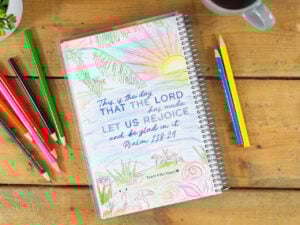 This is the day
THAT THE LORD
has made
LET US REJOICE
and be glad in it
Psalm 118:24